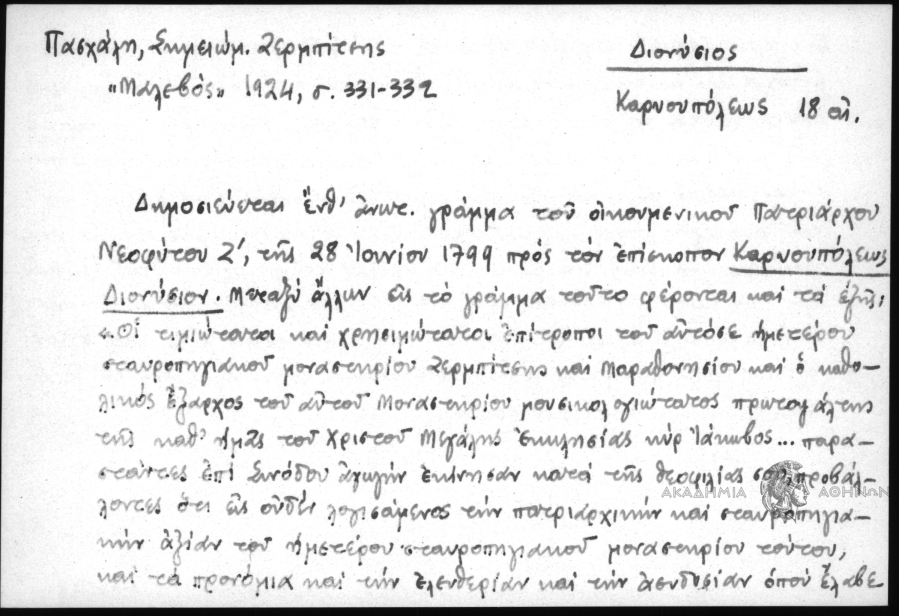 Πασχάλη, Σημειώμ. Ζερμπίτσης
«Μαλεβός» 1924, σ. 331-332
Διονύσιος
Καρυουπόλεως 18 αἰ.
Δημοσιεύεται ἔνθ' ἀνωτ. γράμμα τοῦ οἰκουμενικοῦ Πατριάρχου
Νεοφύτου Ζ', τῆς 28 Ἰουνίου 1799 πρός τόν ἐπίσκοπον Καρυουπόλεως
Διονύσιον. Μεταξύ ἄλλων εἰς τό γράμμα τοῦτο φέρονται καί τά ἑξῆς:
«Οἱ τιμιώτατοι καί χρησιμώτατοι ἐπίτροποι τοῦ αὐτόσε ἡμετέρου
σταυροπηγιακοῦ μοναστηρίου Ζερμπίτσης καί Μαραθονησίου καί ὁ καθο-
λικός ἔξαρχος τοῦ αὐτοῦ μοναστηρίου μουσικολογιώτατος πρωτοψάλτης
τῆς καθ' ἡμᾶς τοῦ Χριστοῦ Μεγάλης Ἐκκλησίας κύρ Ἰάκωβος... παρα-
στάντες ἐπί Συνόδου ἀγωγήν ἐκίνησαν κατά τῆς θεοφιλίας σου, προβάλ-
λοντες ὅτι εἰς οὐδέν λογισάμενος τήν πατριαρχικήν καί σταυροπηγια-
κήν ἀξίαν τοῦ ἡμετέρου σταυροπηγιακοῦ μοναστηρίου τούτου,
καί τά προνόμια καί τήν ἐλευθερίαν καί τήν ἀσυδοσίαν ὁποῦ ἔλαβε
ΑΚΑΔΗΜΙΑ ΑΘΗΝΩΝ